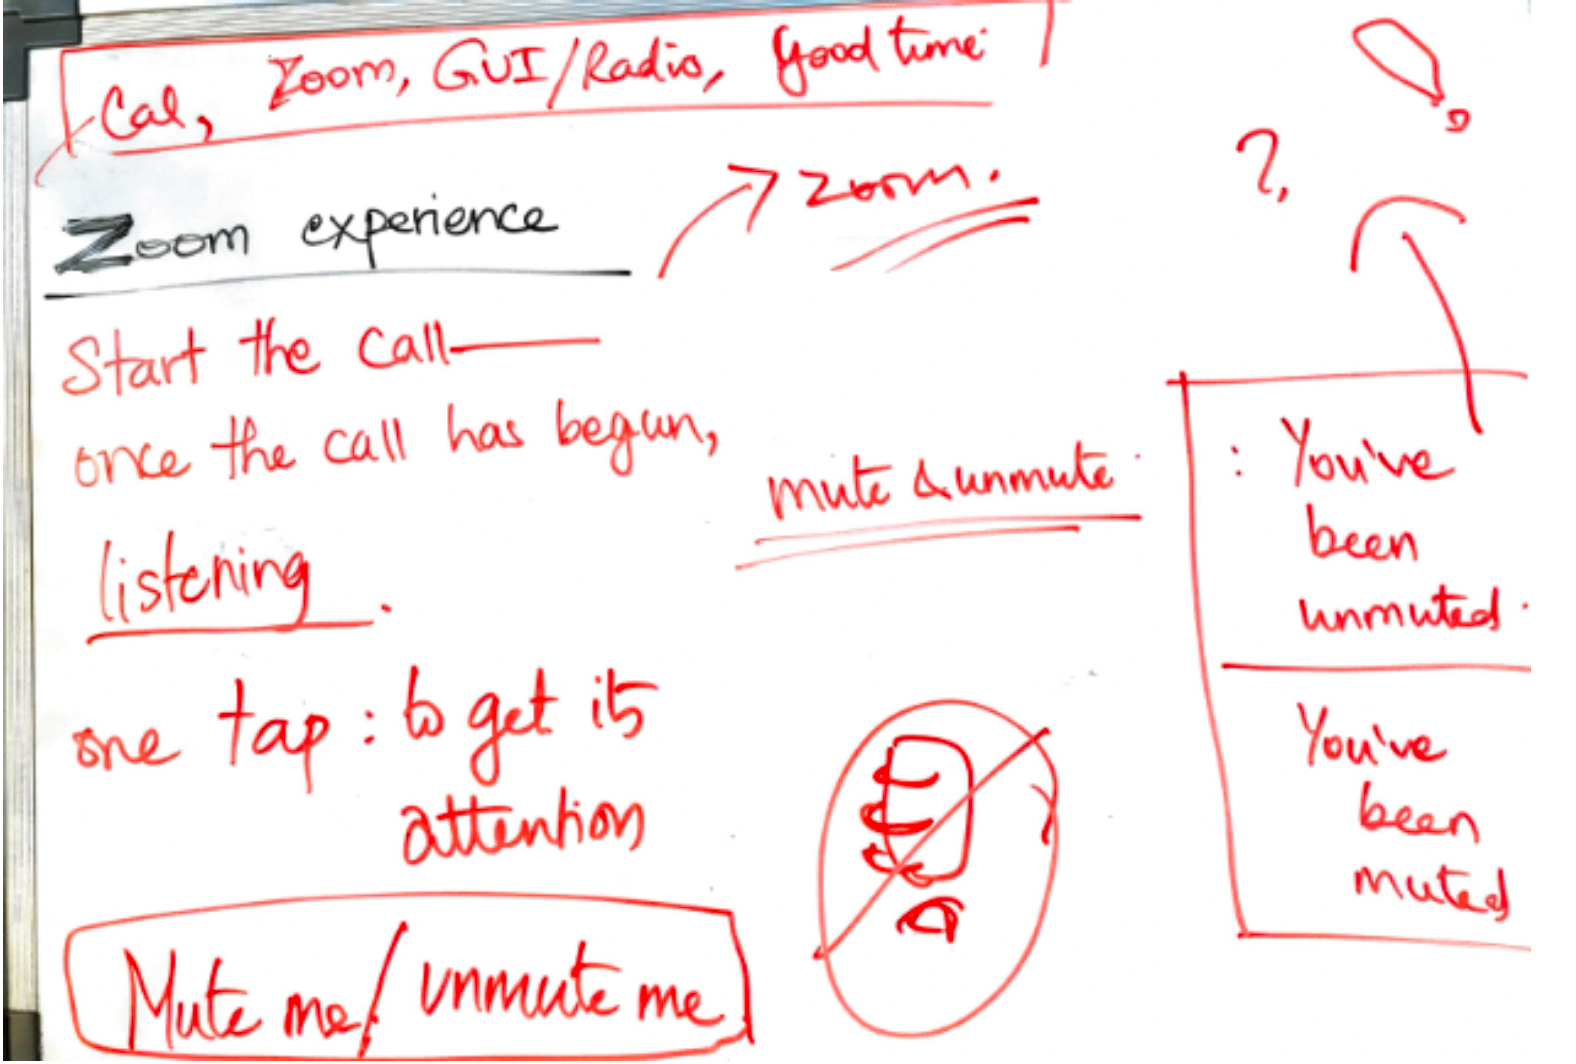 Cal, Zoom, GUI/Radio, Good time
Zoom experience
Zoom.
?
Start the call
once the call has begun,
listening.
mute & unmute
one tap: to get its
attention
Mute me/unmute me
: You've
been
unmuted.
You've
been
muted